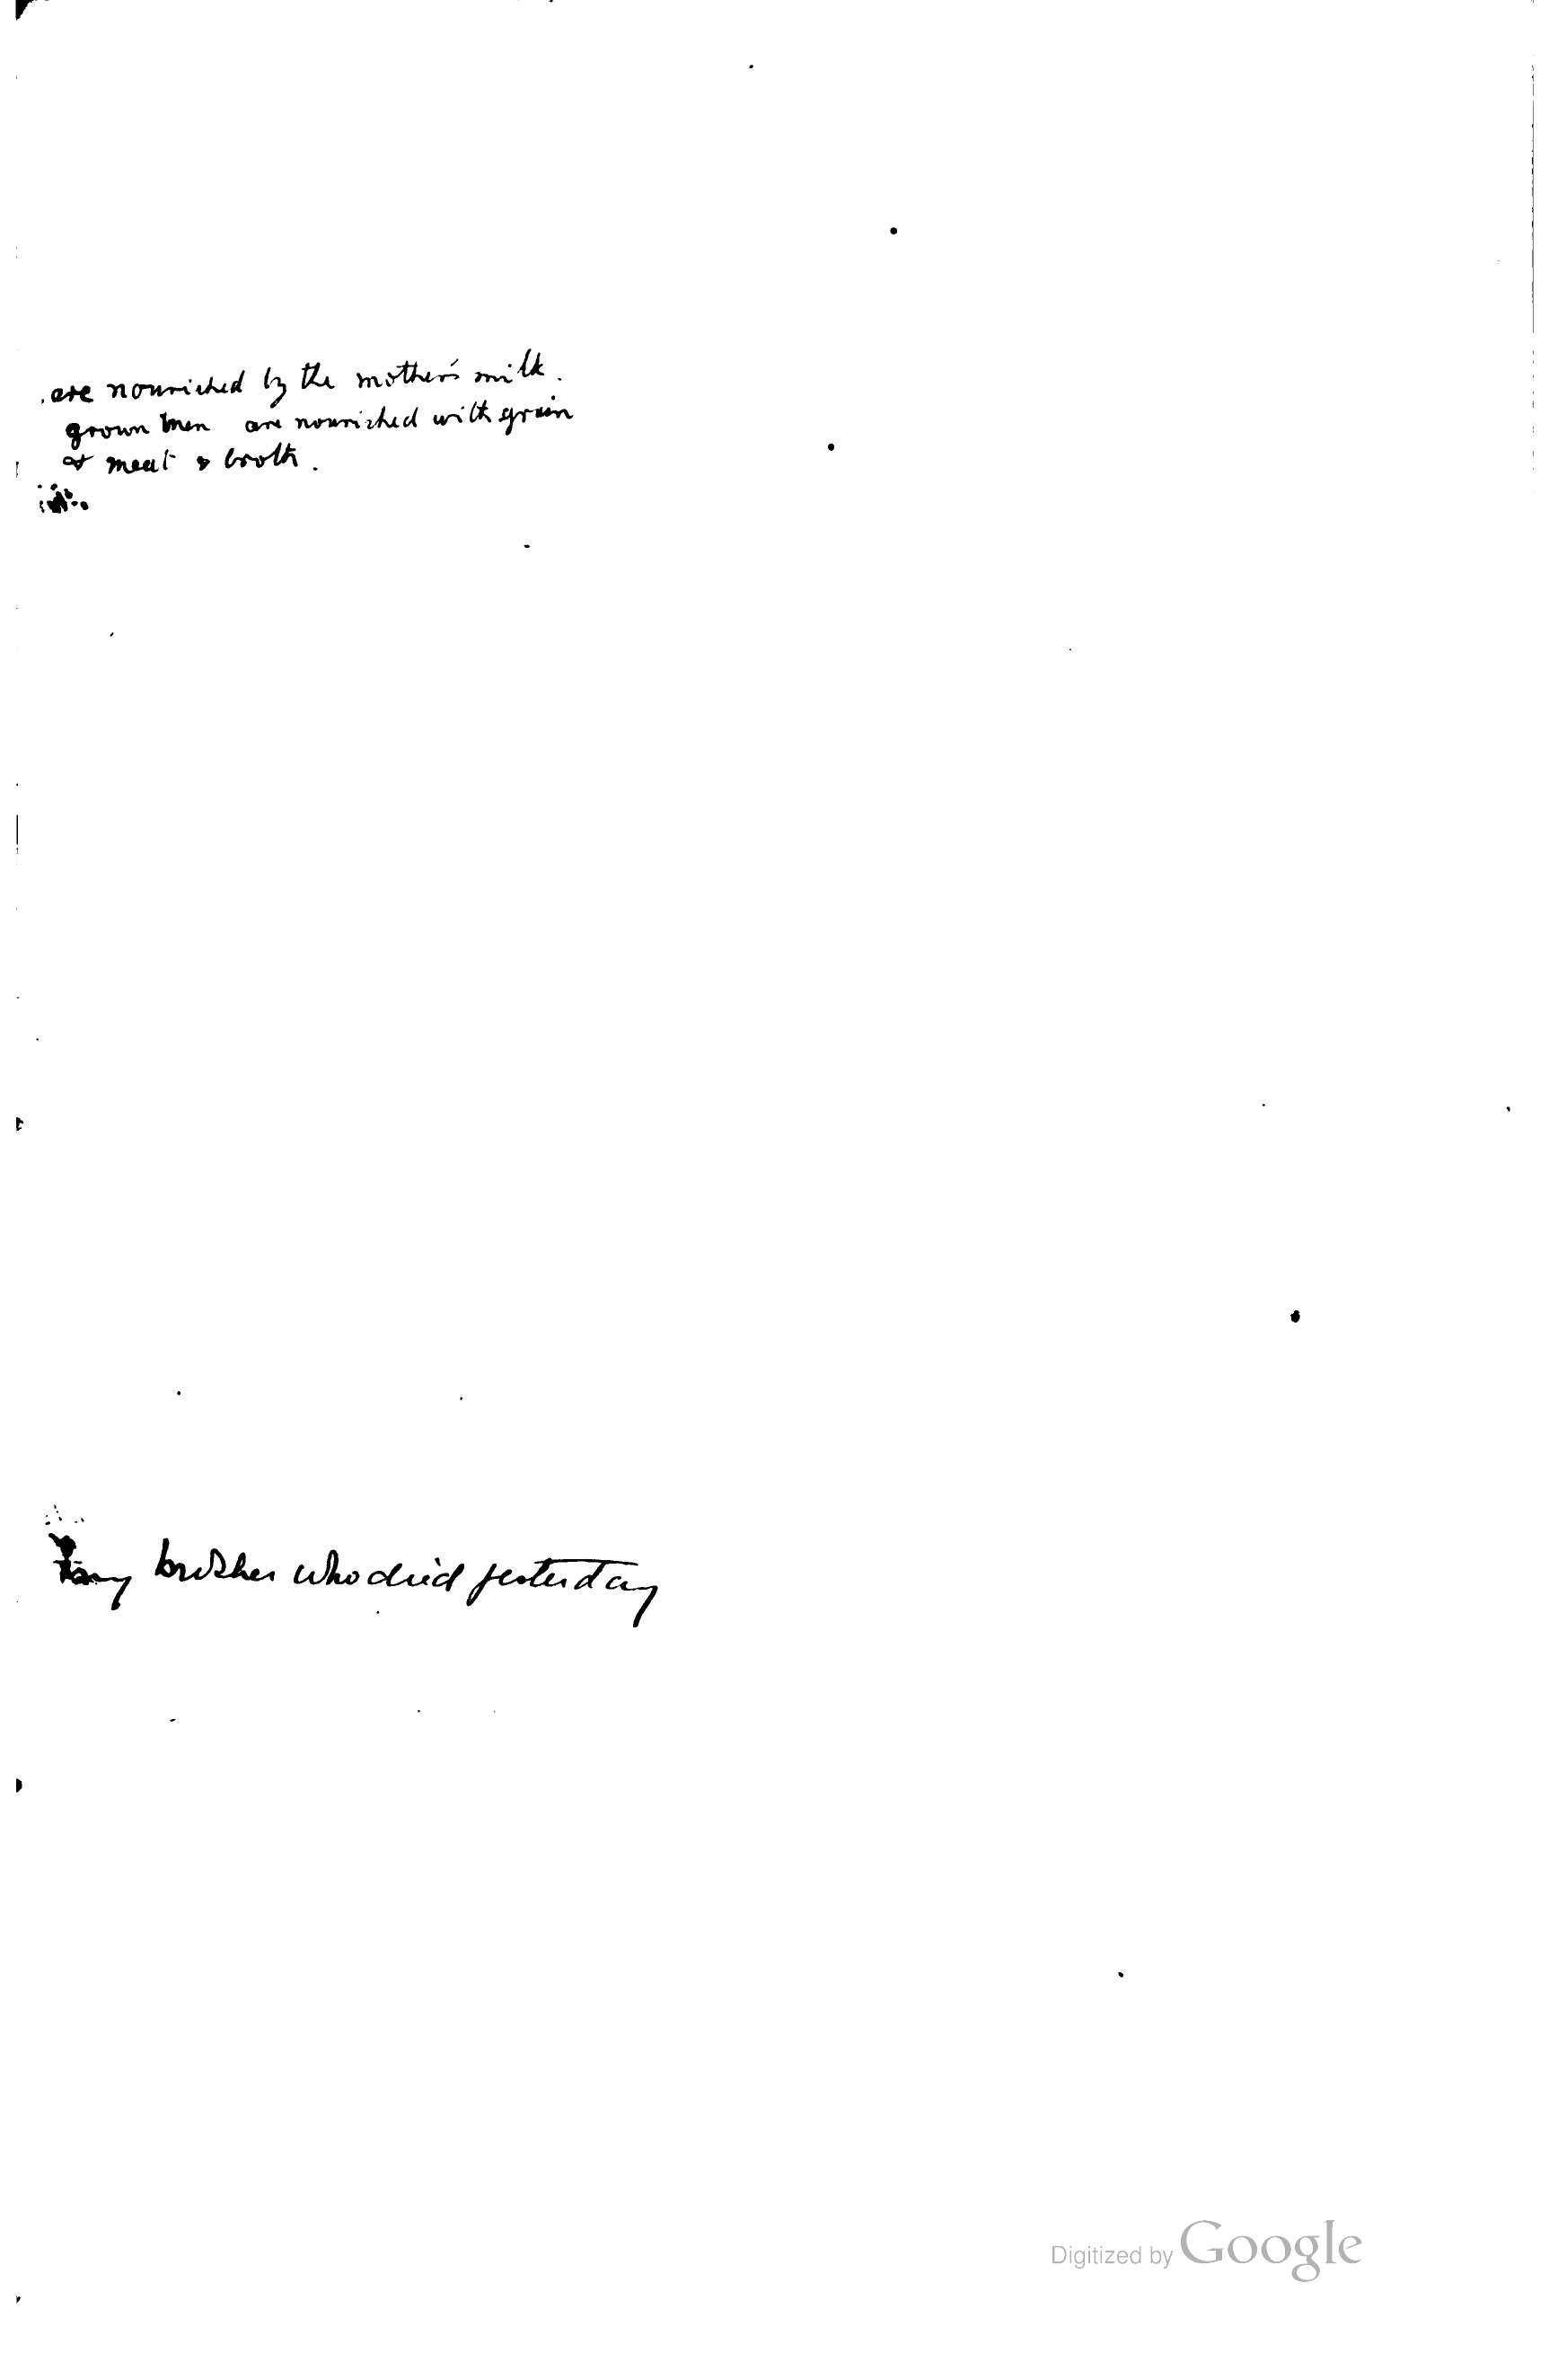 are nourished by the mother's milk.
grown men are nourished with grain
& meat & broth.
my brother who died yesterday
Digitized by Google